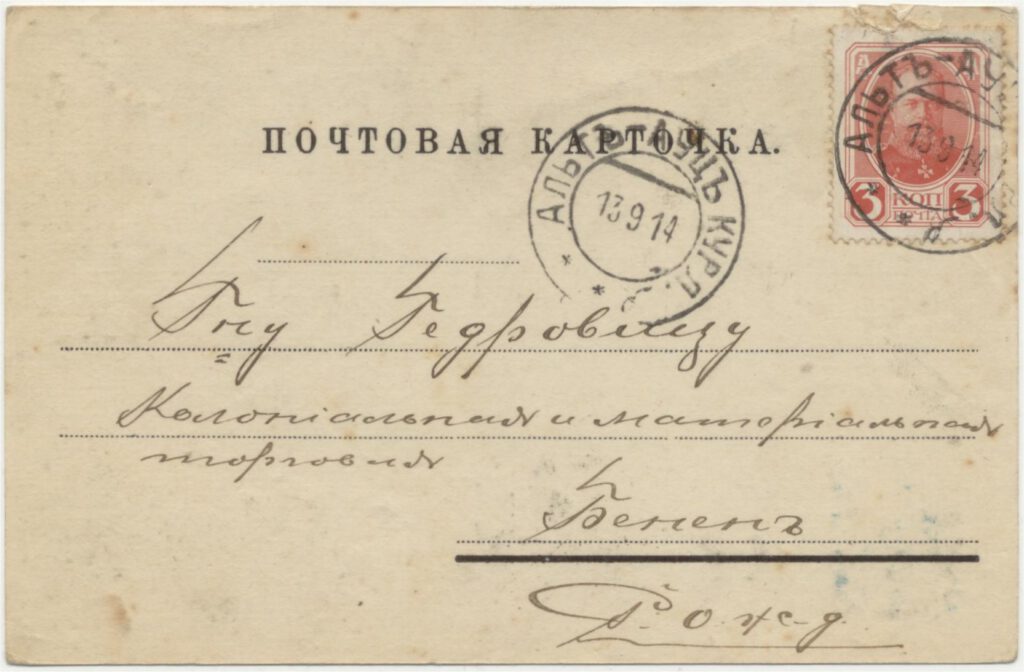 ПОЧТОВАЯ КАРТОЧКА.
АЛЬТЪ-АУЦЪ КУРЛ.
13 9 14
АЛЬТЪ-АУ
13 9 14
3 КОП 3
ПОЧТА
Гну Гедровицу
Колоніальная и матеріальная
торговля
Бененъ
Р-О ж-д.